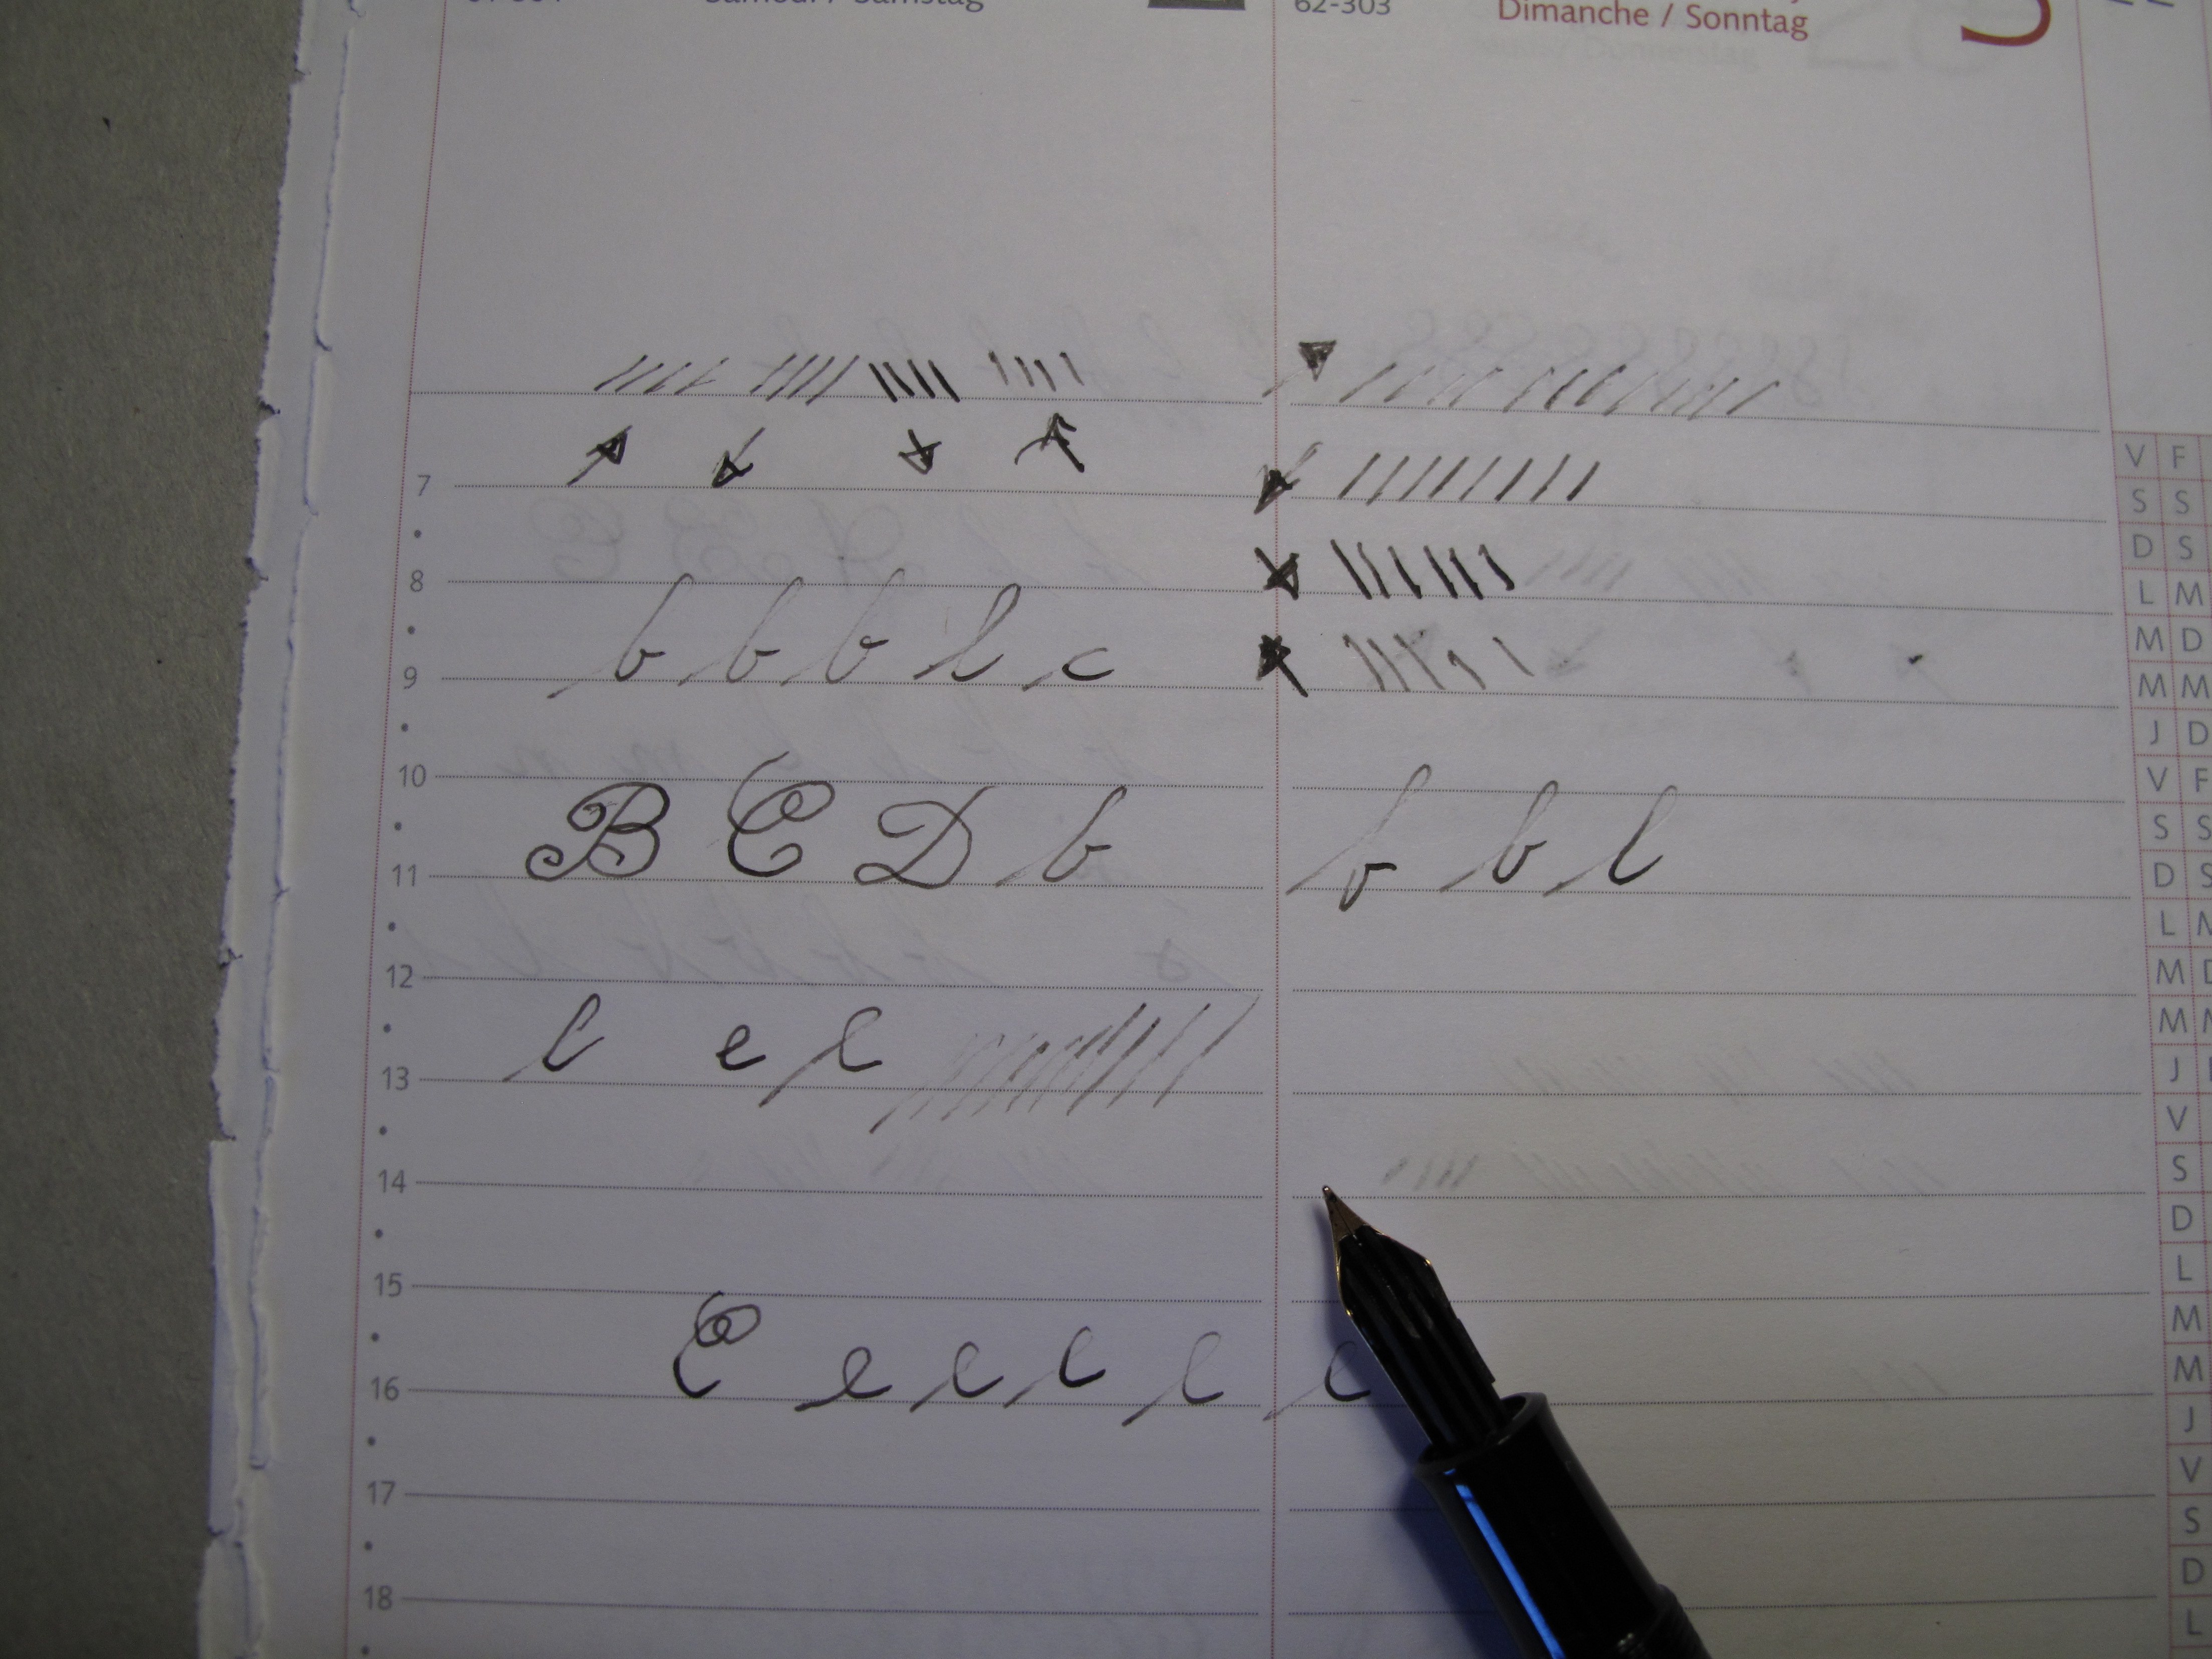 Samedi / Samstag
62-303
Dimanche / Sonntag
7
8
b b b l c
9
10
B C D b
b b l
11
12
l e l
13
14
15
C e e l e e
16
17
18
V F
S S
D S
L M
M D
M M
J D
V F
S S
D S
L M
M D
M M
J
V
S
D
L
M
M
J
V
S
D
L